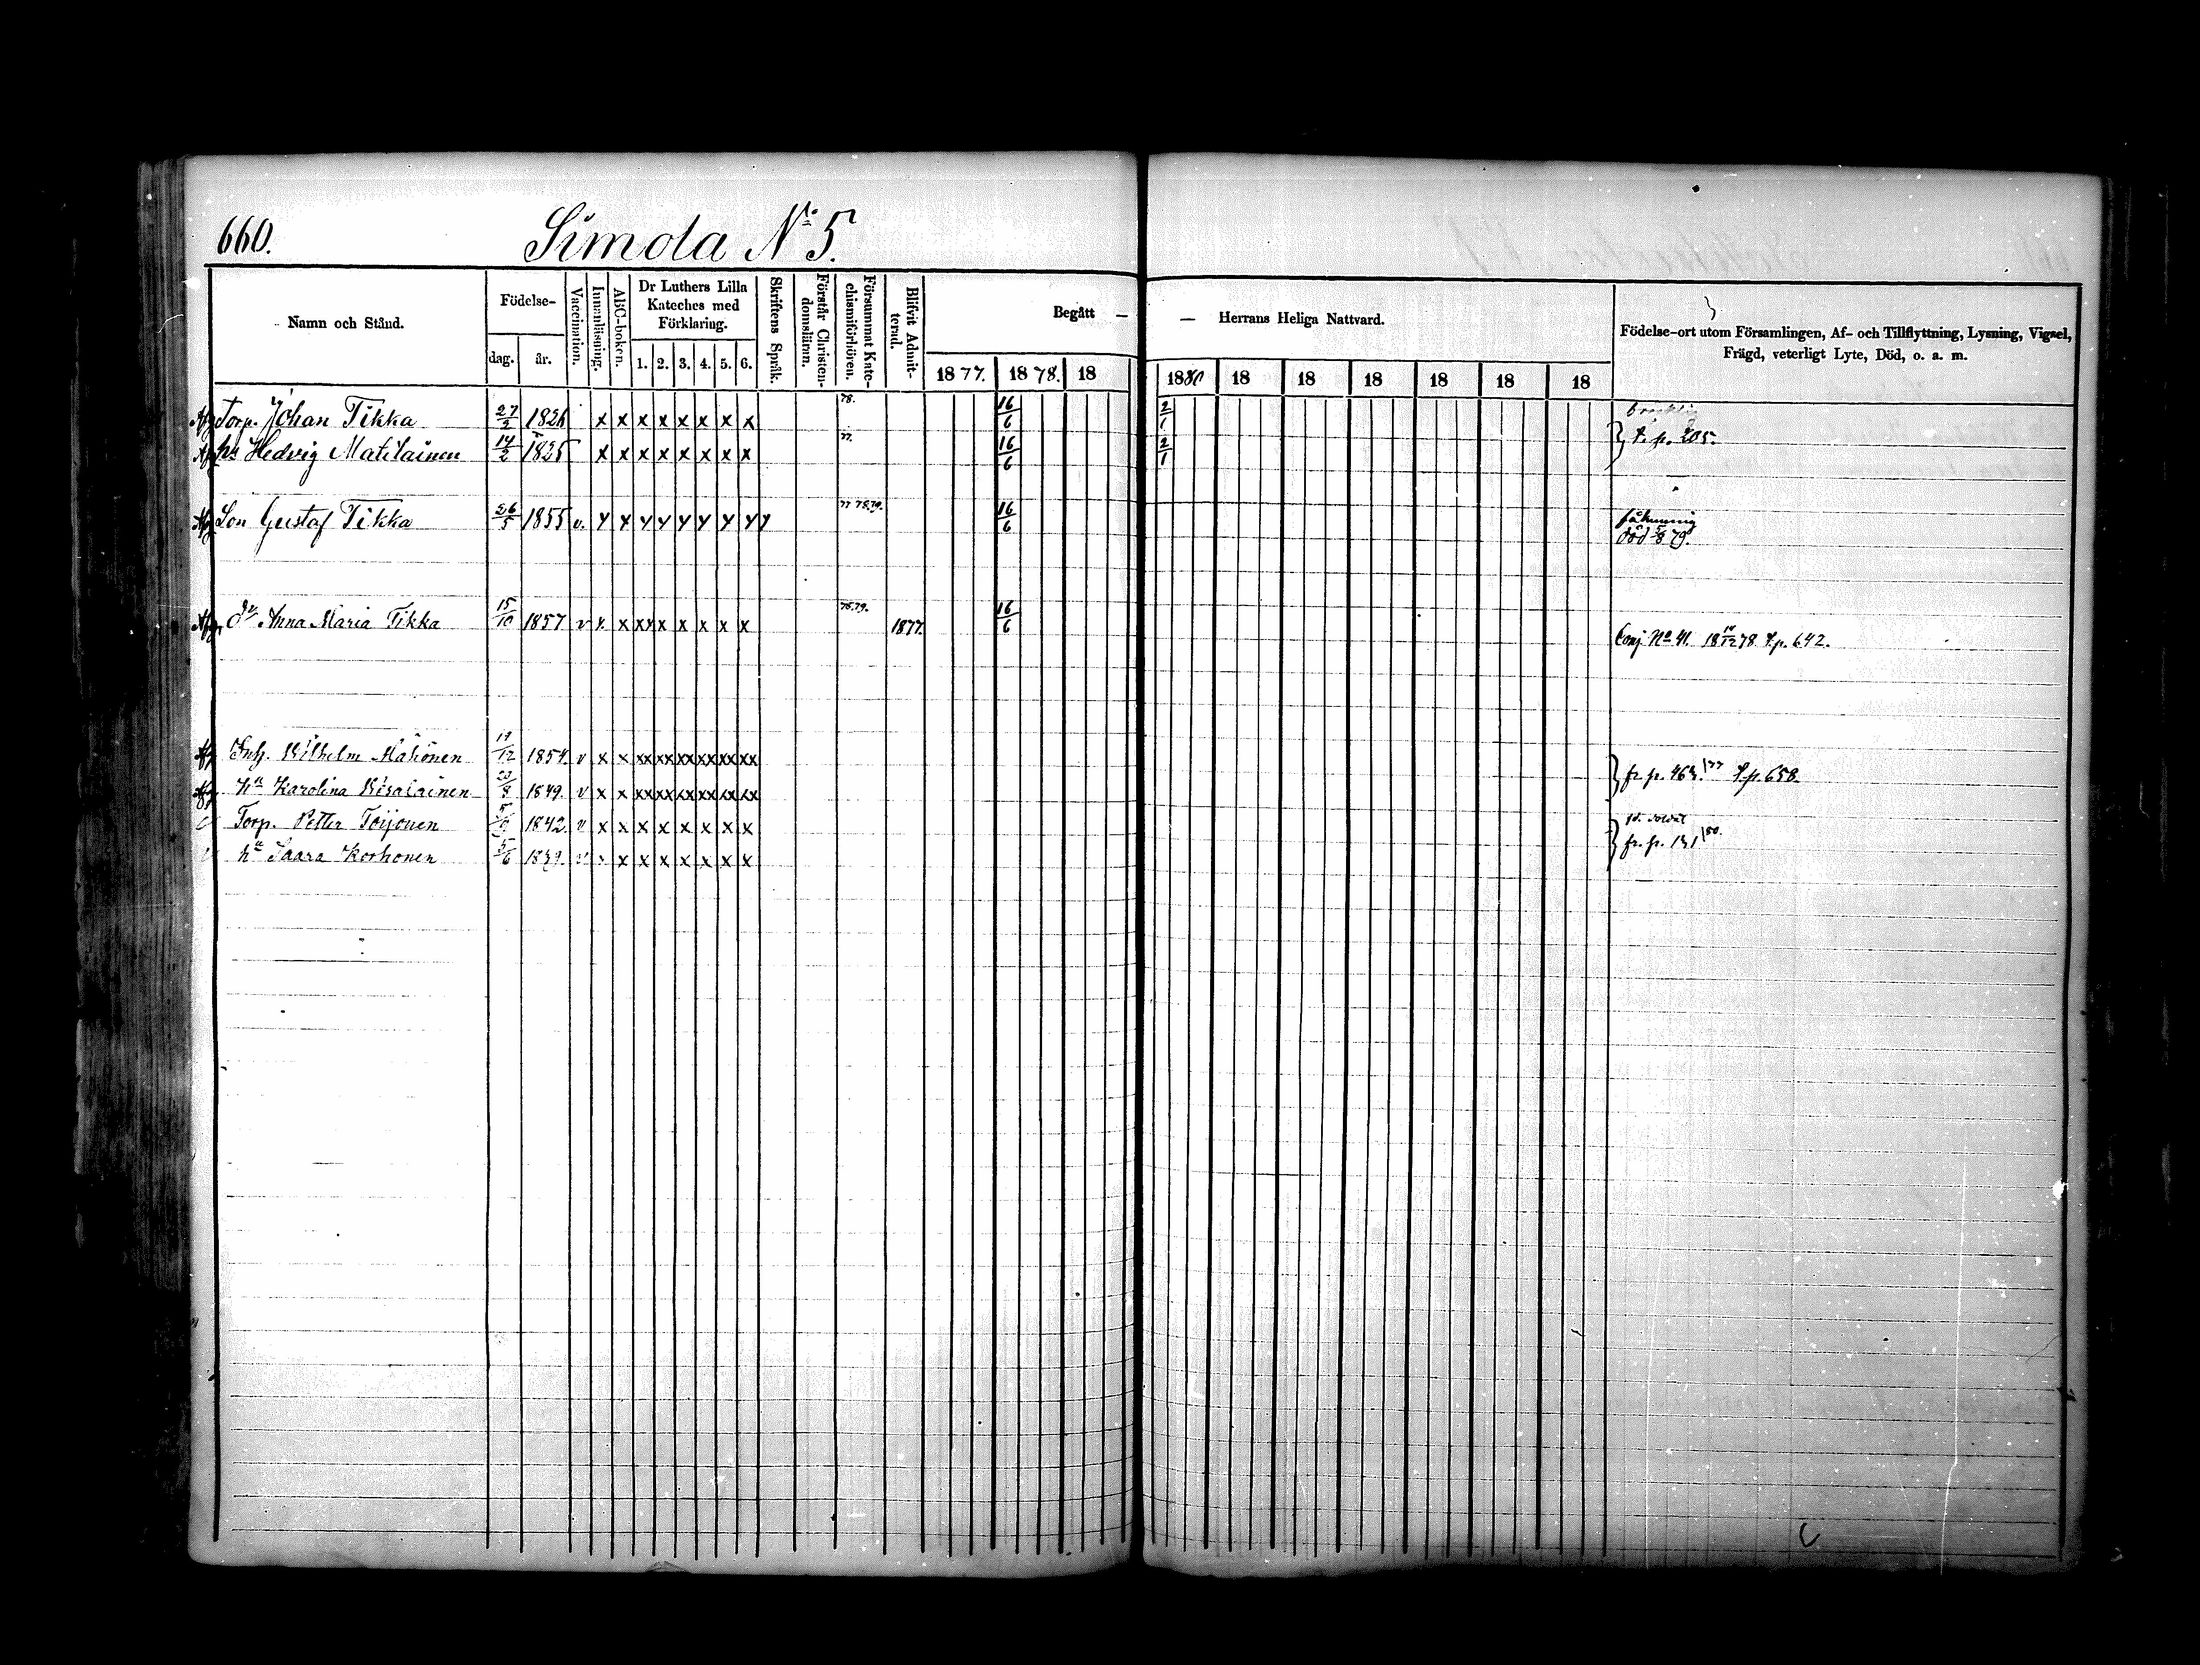 660.
Simola No 5.
Namn och Stånd.
Födelse-
dag.
år.
Vaccination.
Innanläsning.
ABC-boken.
Dr Luthers Lilla
Kateches med
Förklaring.
1. 2. 3. 4. 5. 6.
Skriftens Språk.
Förstår Christen-
domsläran.
Försummat Kate-
chismiförhören.
Blifvit Admit-
terad.
Begått — — Herrans Heliga Nattvard.
1877. 1878. 18 1880 18 18 18 18 18 18
Födelse-ort utom Församlingen, Af- och Tillflyttning, Lysning, Vigsel,
Frägd, veterligt Lyte, Död, o. a. m.
Torp. Johan Tikka 27/2 1826 x x x x x x x x 78. 16/6 2/1
hu Hedvig Matilainen 14/2 1825 x x x x x x x x 77. 16/6 2/1
} t. p. 205.
Son Gustaf Tikka 26/5 1855 v. 77 78.79. 16/6
död 5/8 79.
Dr Anna Maria Tikka 15/10 1857 v x x xx x x x x x 78.79. 1877. 16/6
Conj No 41. 18 /12 78 t.p. 642.
Inh. Wilhelm Mähönen 19/12 1854. v x x xx xx xx xx xx xx
hu Karolina 23/8 1849. v x x xx xx xx xx xx xx
} fr. p. 464. /77 t.p. 658.
Torp. Petter Toijonen 1842. v x x x x x x x x
hu Saara Korhonen 5/6 x x x x x x x
} fr. p. 141 /80.